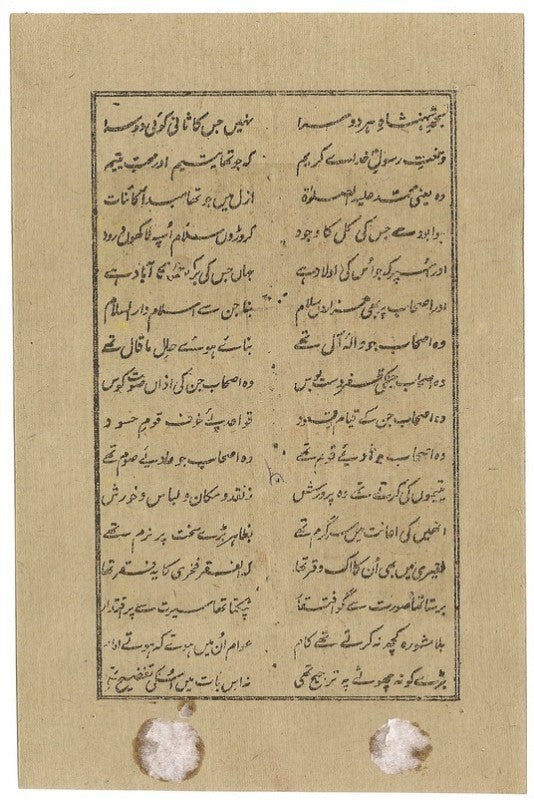 شہنشاہ ہر دو سرا نہیں جس کا ثانی کوئی دوسرا
رسول خدائے کریم کہ جو تھا یتیم اور محب یتیم
وہ یعنی محمد علیہ الصلوٰۃ ازل میں جو تھا مبدا کائنات
ہوا بود سے جس کی کل کا وجود کروڑوں سلام اُسپہ لاکھوں درود
اور اُسپر کہ جو اُس کی اولاد ہے جہاں جس کی برکت سے آباد ہے
اور اصحاب پر بھی ہزاراں سلام بنا جن سے اسلام دار السلام
وہ اصحاب جو والہ آل تھے بنائے ہوئے حال ما قال تھے
وہ اصحاب جنکی ظفر دست بوس وہ اصحاب جن کی اذاں صوت کوس
وہ اصحاب جن کے قیام و قعود قواعد پئے خوف قوم حسود
وہ اصحاب جو ہادیے قوم تھے وہ اصحاب جو عادیے صوم تھے
یتیموں کی کرتے تھے وہ پرورش ز نقد و مکان و لباس و خورش
انھیں کی اعانت میں سرگرم تھے بظاہر بڑے سخت پر نرم تھے
فقیری میں بھی اُن کا اک وقر تھا کہ الفقر فخری کا یہ فقر تھا
برستا تھا صورت سے گو افتقار ٹپکتا تھا سیرت سے پر اقتدار
بلا مشورہ کچھ نہ کرتے تھے کام عوام اُن میں ہوتے کہ ہوتے امام
بڑے کو نہ چھوٹے پہ ترجیح تھی نہ اس بات میں اُسکی تفضیح تھی